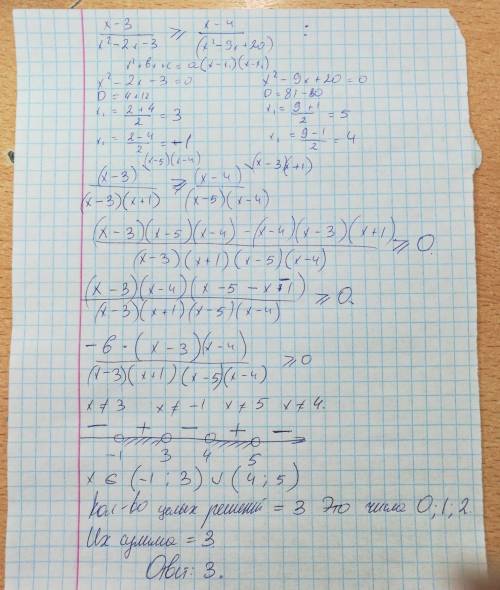 (x-3)/(x²-2x-3) ≥ (x-4)/(x²-9x+20)
x²-2x-3=0   x²-9x+20=0
D=4+12   D=81-80
x₁=(2+4)/2=3   x₁=(9+1)/2=5
x₁=(2-4)/2=-1   x₁=(9-1)/2=4
(x-3)\(x-5)(x-4)/(x-3)(x+1) ≥ (x-4)\(x-3)(x+1)/(x-5)(x-4)
((x-3)(x-5)(x-4)-(x-4)(x-3)(x+1))/((x-3)(x+1)(x-5)(x-4)) ≥ 0.
((x-3)(x-4)(x-5-x-1))/((x-3)(x+1)(x-5)(x-4)) ≥ 0.
(-6·(x-3)(x-4))/((x-3)(x+1)(x-5)(x-4)) ≥ 0
x≠3 x≠-1 x≠5 x≠4.
- + - + -
-1 3 4 5
x ∈ (-1; 3) ∪ (4; 5)
Кол-во целых решений = 3 Это числа 0; 1; 2.
Их сумма = 3
Ответ: 3.